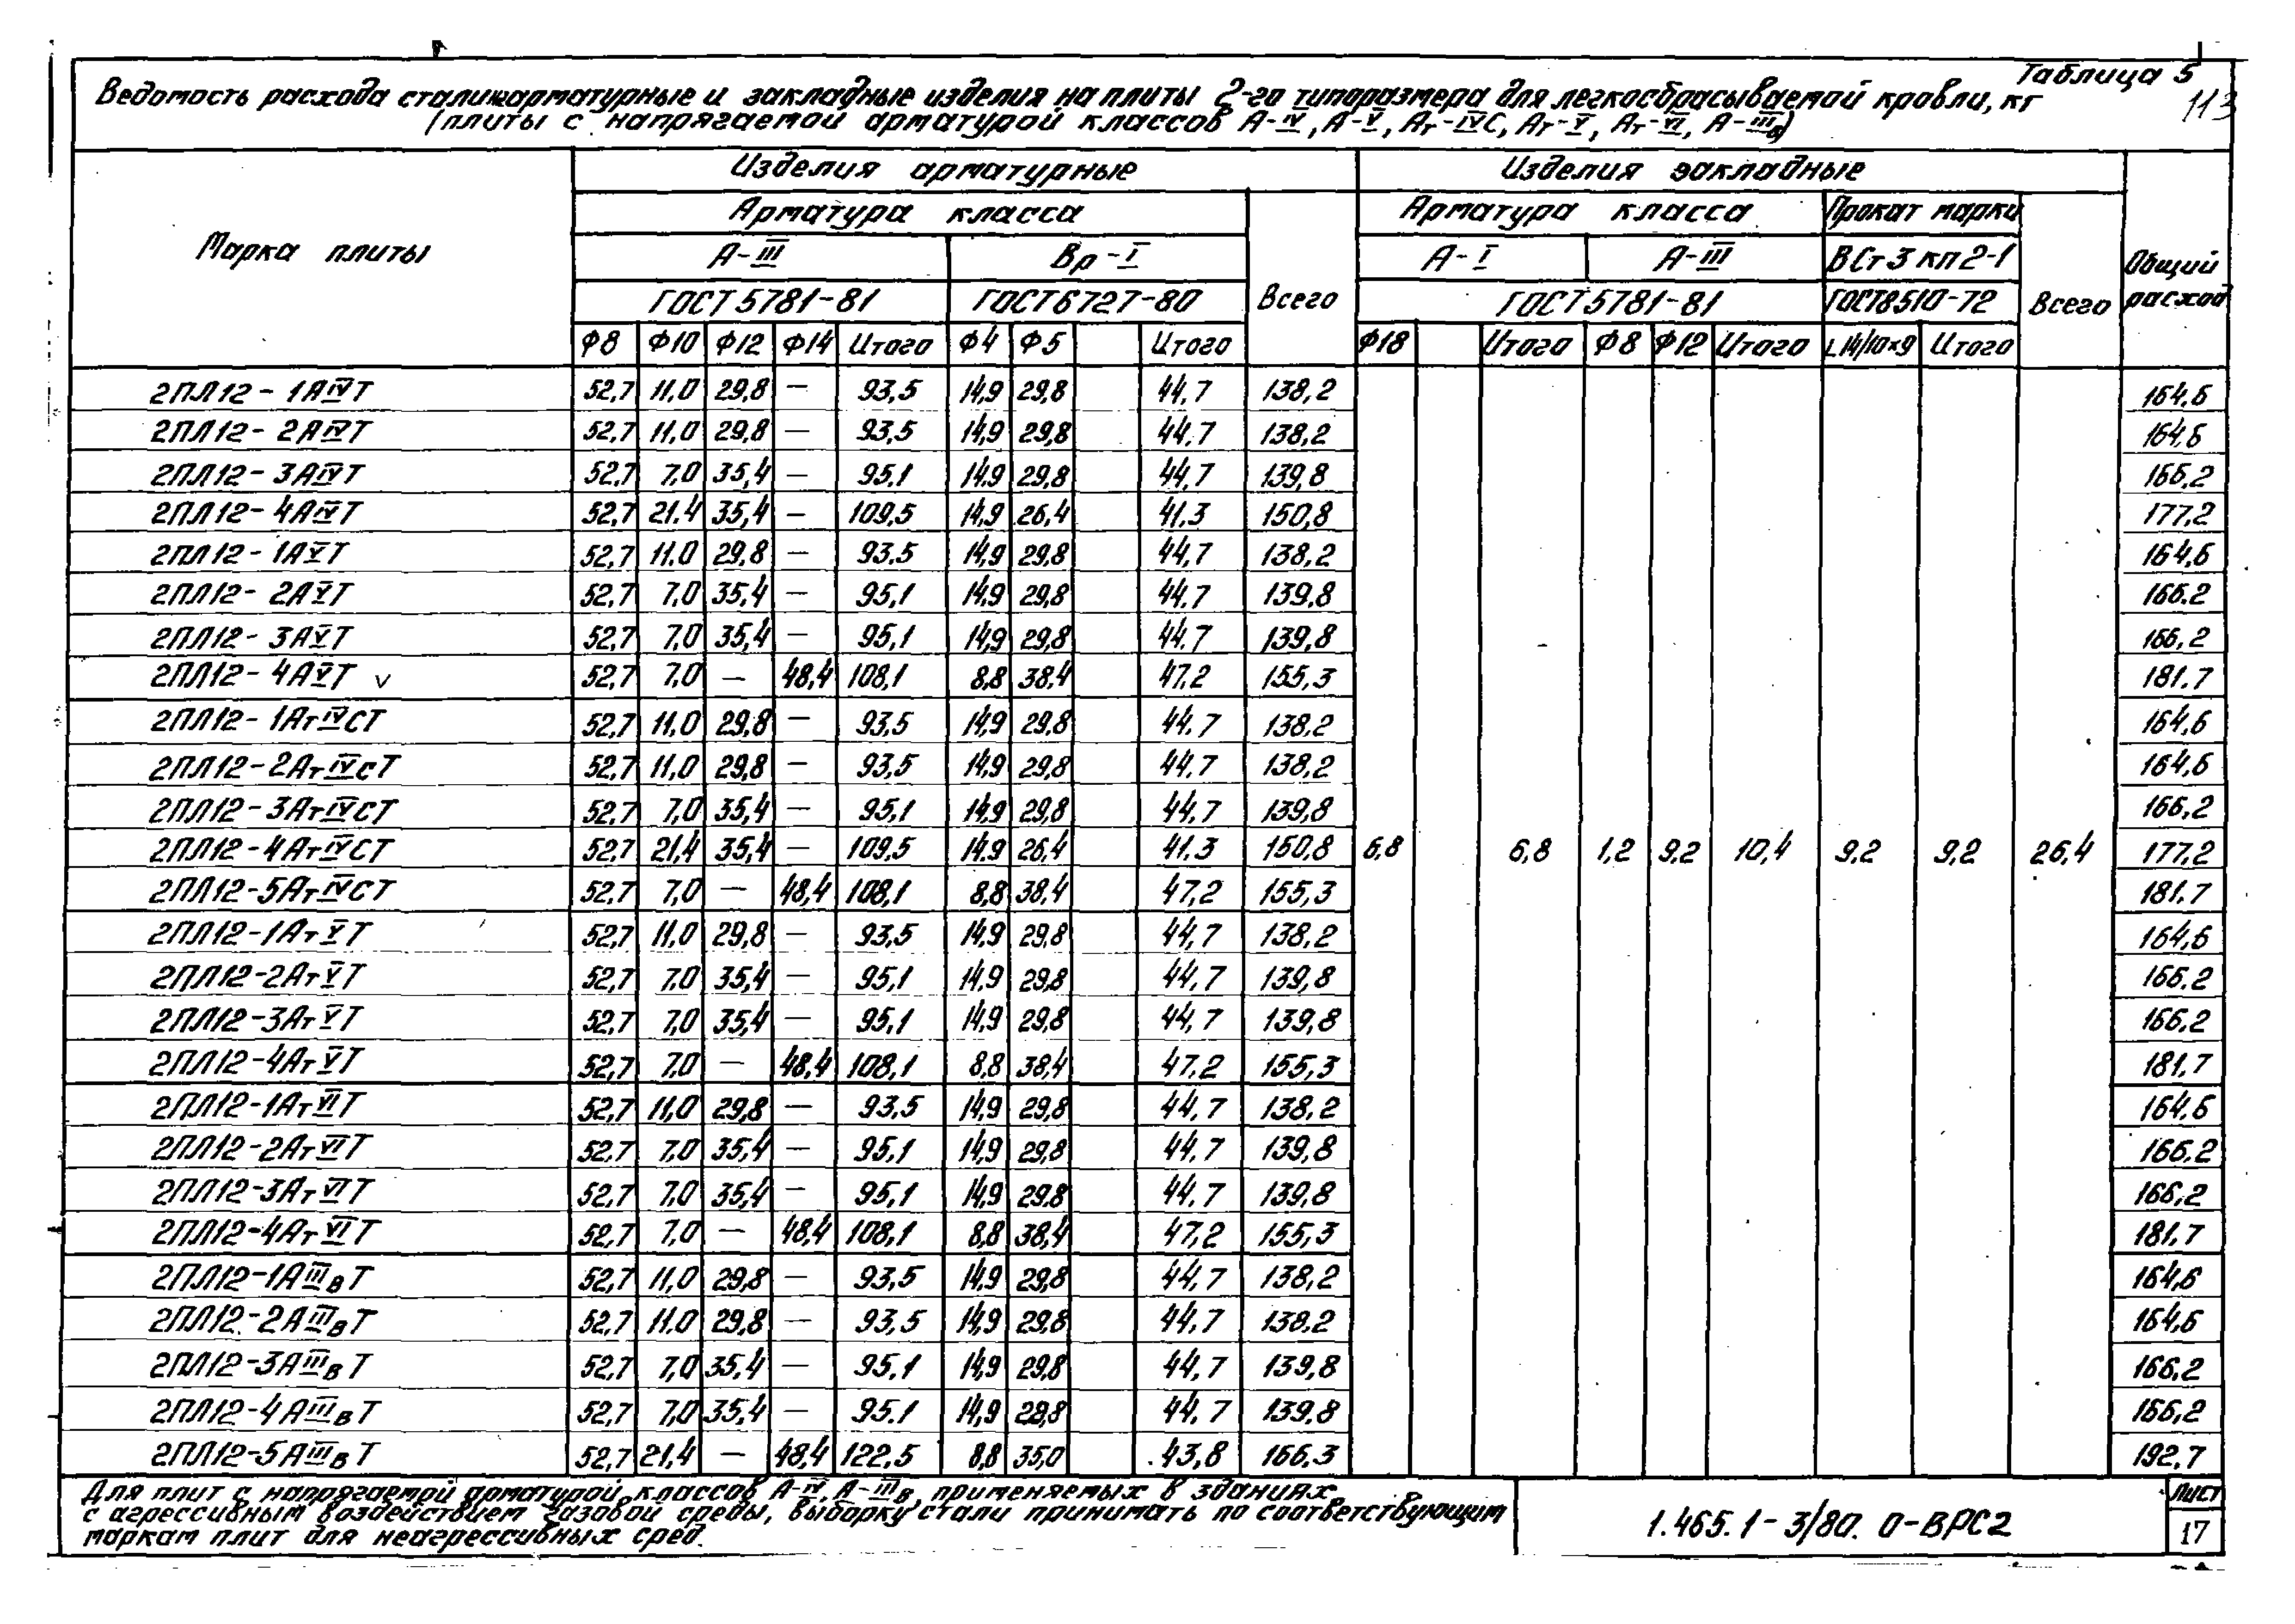 Таблица 5
113
Ведомость расхода стали на арматурные и закладные изделия на плиты 2-го типоразмера для легкосбрасываемой кровли, кг
(плиты с напрягаемой арматурой классов А-IV, А-V, Ат-IVС, Ат-V, Ат-VI, А-IIIв)
Марка плиты Изделия арматурные Изделия закладные Общий расход
Арматура класса Всего Арматура класса Прокат марки Всего
А-III Вр-I А-I А-III ВСт3кп2-1
ГОСТ 5781-81 ГОСТ 6727-80 ГОСТ 5781-81 ГОСТ 8510-72
Ф8 Ф10 Ф12 Ф14 Итого Ф4 Ф5 Итого Ф18 Итого Ф8 Ф12 Итого L14/10×9 Итого
2ПЛ12-1АIVТ 52,7 11,0 29,8 — 93,5 14,9 29,8 44,7 138,2 164,6
2ПЛ12-2АIVТ 52,7 11,0 29,8 — 93,5 14,9 29,8 44,7 138,2 164,6
2ПЛ12-3АIVТ 52,7 7,0 35,4 — 95,1 14,9 29,8 44,7 139,8 166,2
2ПЛ12-4АIVТ 52,7 21,4 35,4 — 109,5 14,9 26,4 41,3 150,8 177,2
2ПЛ12-1АVТ 52,7 11,0 29,8 — 93,5 14,9 29,8 44,7 138,2 164,6
2ПЛ12-2АVТ 52,7 7,0 35,4 — 95,1 14,9 29,8 44,7 139,8 166,2
2ПЛ12-3АVТ 52,7 7,0 35,4 — 95,1 14,9 29,8 44,7 139,8 166,2
2ПЛ12-4АVТ v 52,7 7,0 — 48,4 108,1 8,8 38,4 47,2 155,3 181,7
2ПЛ12-1АтIVСТ 52,7 11,0 29,8 — 93,5 14,9 29,8 44,7 138,2 164,6
2ПЛ12-2АтIVСТ 52,7 11,0 29,8 — 93,5 14,9 29,8 44,7 138,2 164,6
2ПЛ12-3АтIVСТ 52,7 7,0 35,4 — 95,1 14,9 29,8 44,7 139,8 166,2
2ПЛ12-4АтIVСТ 52,7 21,4 35,4 — 109,5 14,9 26,4 41,3 150,8 6,8 6,8 1,2 9,2 10,4 9,2 9,2 26,4 177,2
2ПЛ12-5АтIVСТ 52,7 7,0 — 48,4 108,1 8,8 38,4 47,2 155,3 181,7
2ПЛ12-1АтVТ 52,7 11,0 29,8 — 93,5 14,9 29,8 44,7 138,2 164,6
2ПЛ12-2АтVТ 52,7 7,0 35,4 — 95,1 14,9 29,8 44,7 139,8 166,2
2ПЛ12-3АтVТ 52,7 7,0 35,4 — 95,1 14,9 29,8 44,7 139,8 166,2
2ПЛ12-4АтVТ 52,7 7,0 — 48,4 108,1 8,8 38,4 47,2 155,3 181,7
2ПЛ12-1АтVIТ 52,7 11,0 29,8 — 93,5 14,9 29,8 44,7 138,2 164,6
2ПЛ12-2АтVIТ 52,7 7,0 35,4 — 95,1 14,9 29,8 44,7 139,8 166,2
2ПЛ12-3АтVIТ 52,7 7,0 35,4 — 95,1 14,9 29,8 44,7 139,8 166,2
2ПЛ12-4АтVIТ 52,7 7,0 — 48,4 108,1 8,8 38,4 47,2 155,3 181,7
2ПЛ12-1АIIIвТ 52,7 11,0 29,8 — 93,5 14,9 29,8 44,7 138,2 164,6
2ПЛ12-2АIIIвТ 52,7 11,0 29,8 — 93,5 14,9 29,8 44,7 138,2 164,6
2ПЛ12-3АIIIвТ 52,7 7,0 35,4 — 95,1 14,9 29,8 44,7 139,8 166,2
2ПЛ12-4АIIIвТ 52,7 7,0 35,4 — 95,1 14,9 29,8 44,7 139,8 166,2
2ПЛ12-5АIIIвТ 52,7 21,4 — 48,4 122,5 8,8 35,0 43,8 166,3 192,7
Для плит с напрягаемой арматурой классов А-IV, А-IIIв, применяемых в зданиях
с агрессивным воздействием газовой среды, выборку стали принимать по соответствующим
маркам плит для неагрессивных сред.
1.465.1-3/80. 0-ВРС2
Лист
17